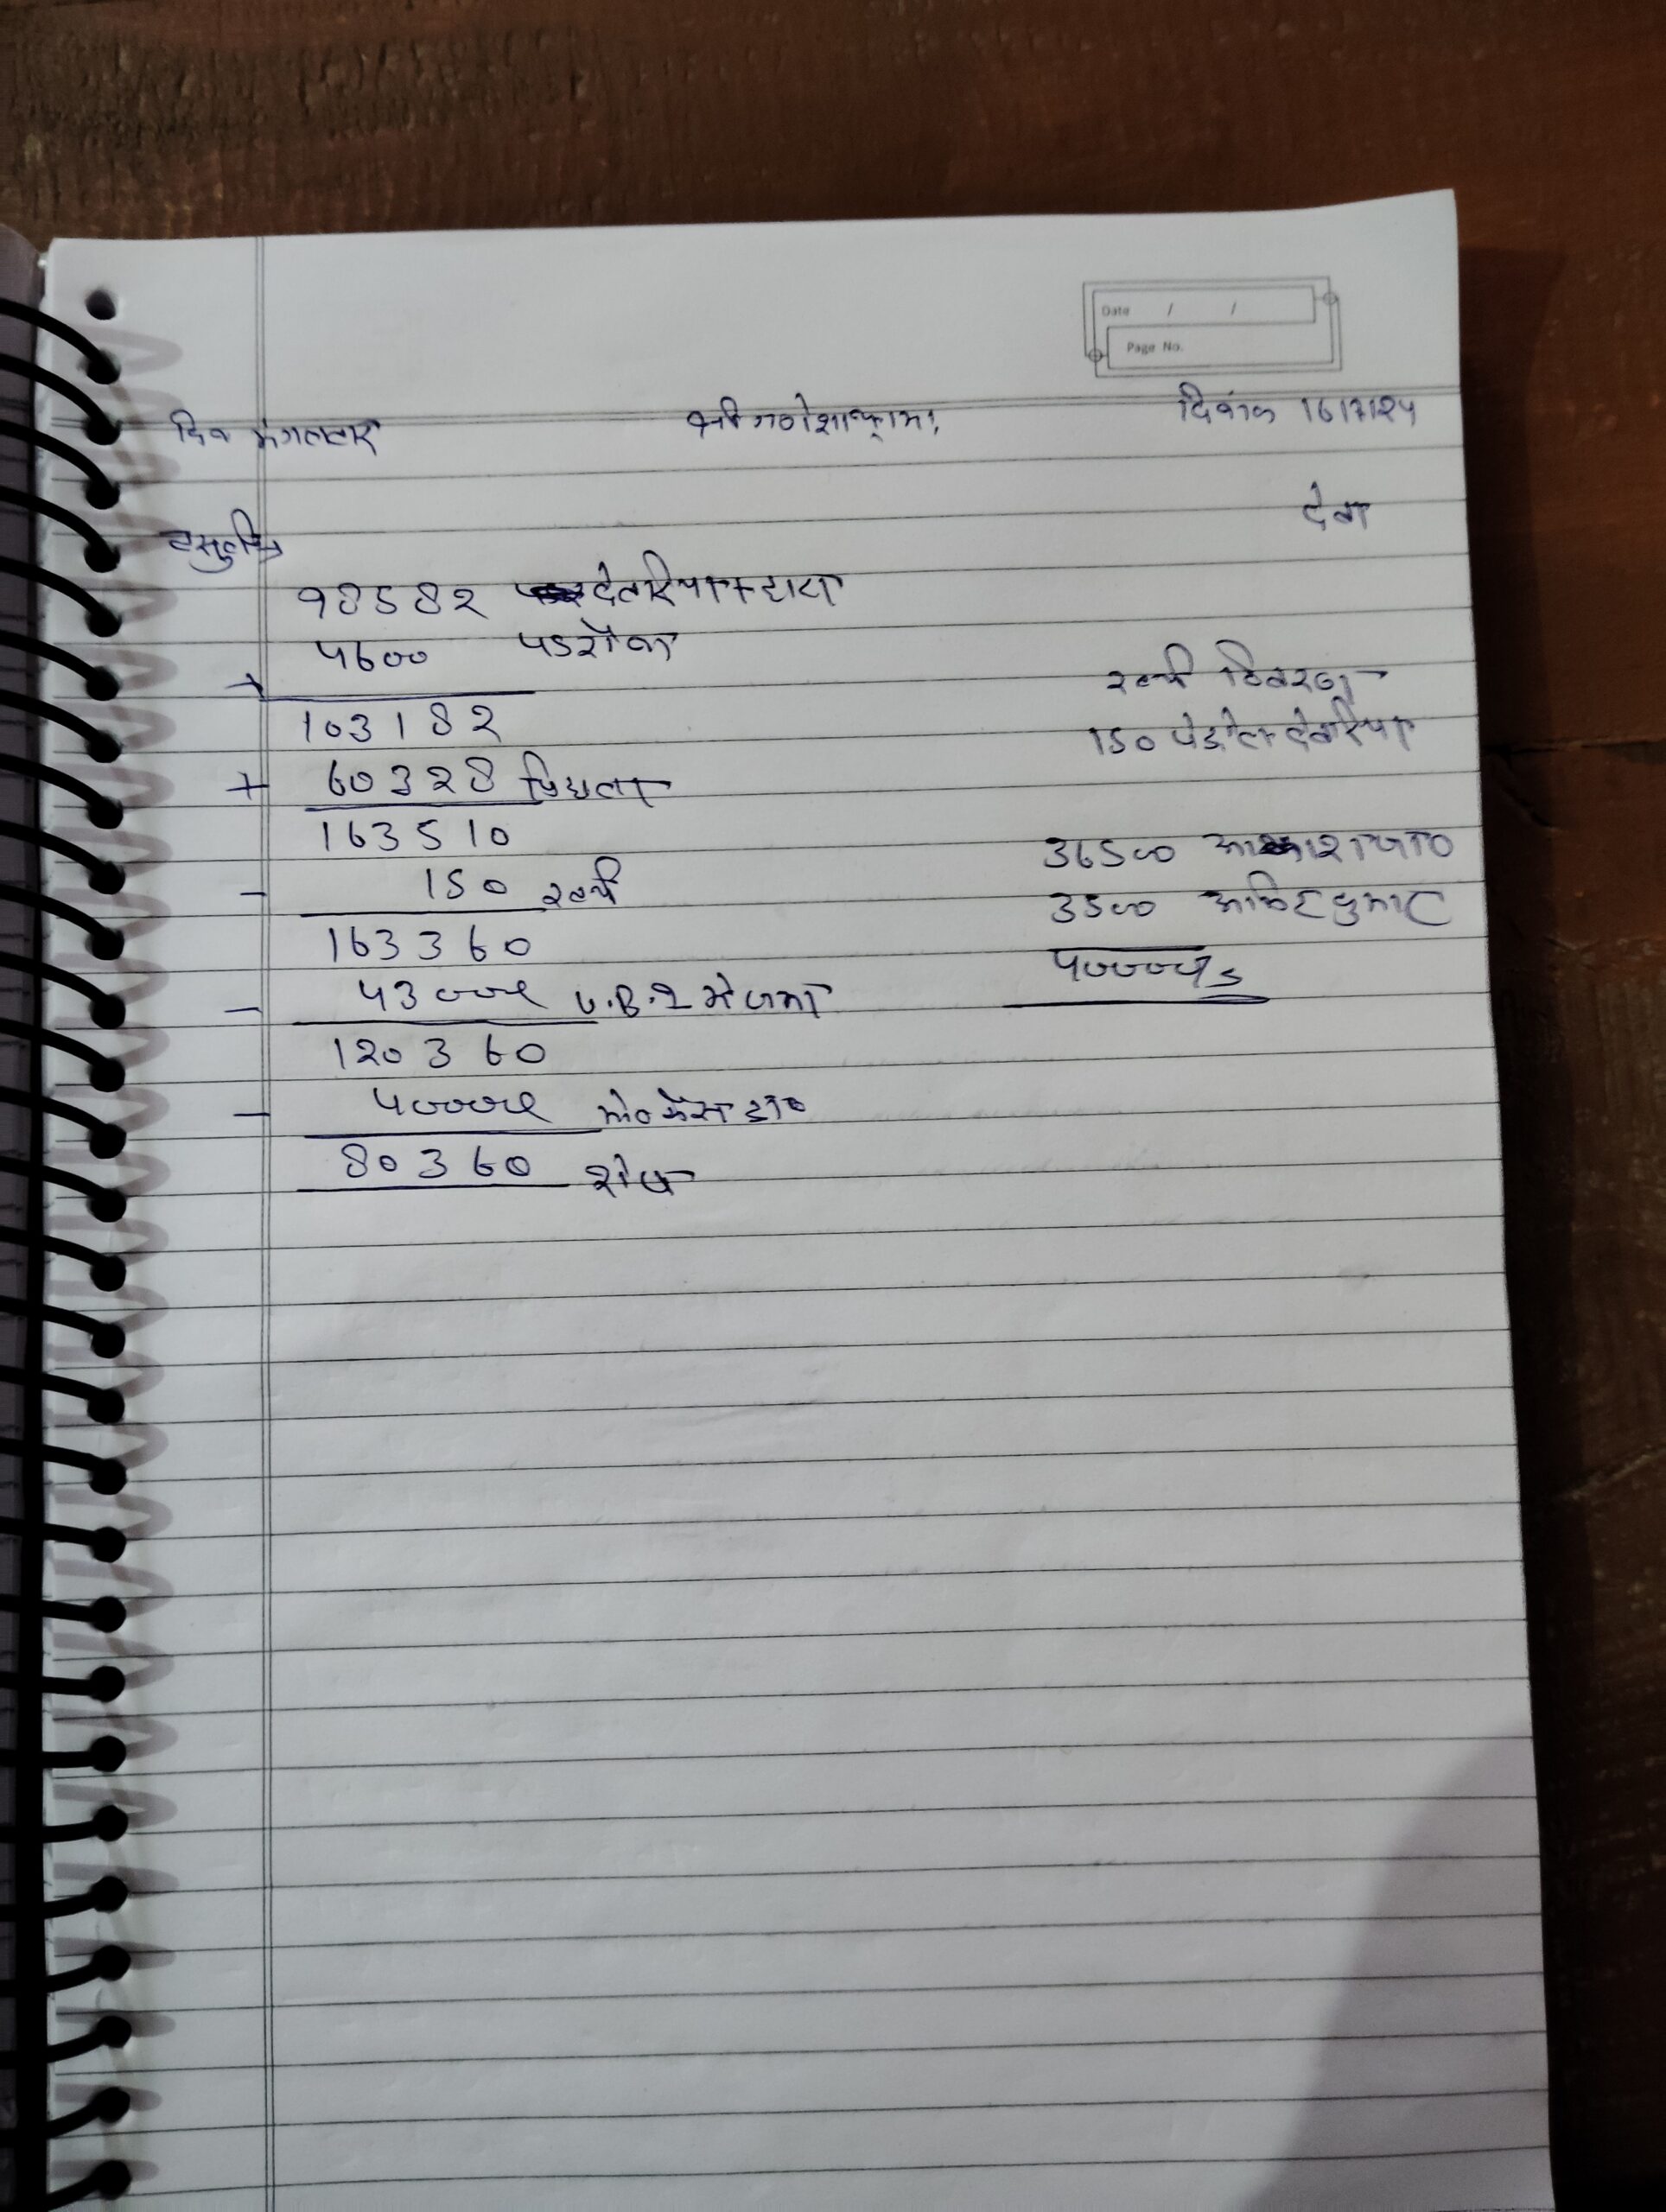 Date / /
Page No.
दिन मंगलवार श्री गणेशाय नमः दिनांक 16/7/24
वसुली देना
98582 देवरिया + हाटा
4600 पडरौना
+
103182 खर्च विवरण
150 पेट्रोल देवरिया
+ 60328 पिछला
163510
- 150 खर्च 36500 आकाश
163360 3500 कुमार
- 43000 U.B.2 मे जमा 40000
120360
- 40000
80360 शेष